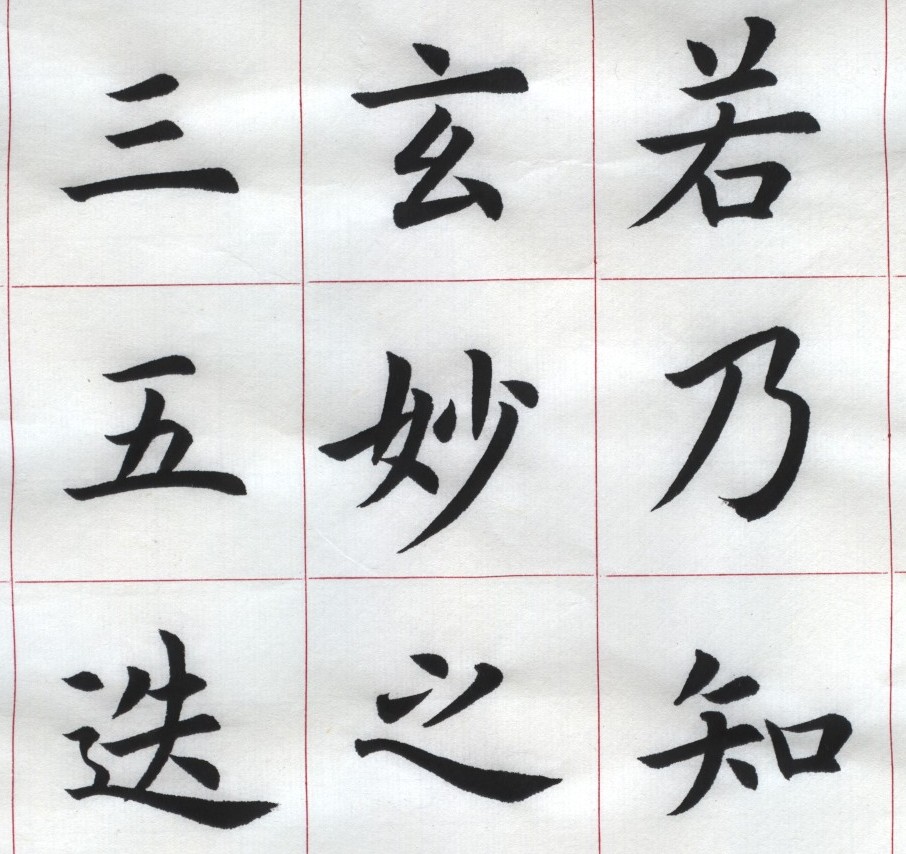 若乃知
玄妙之
三五迭